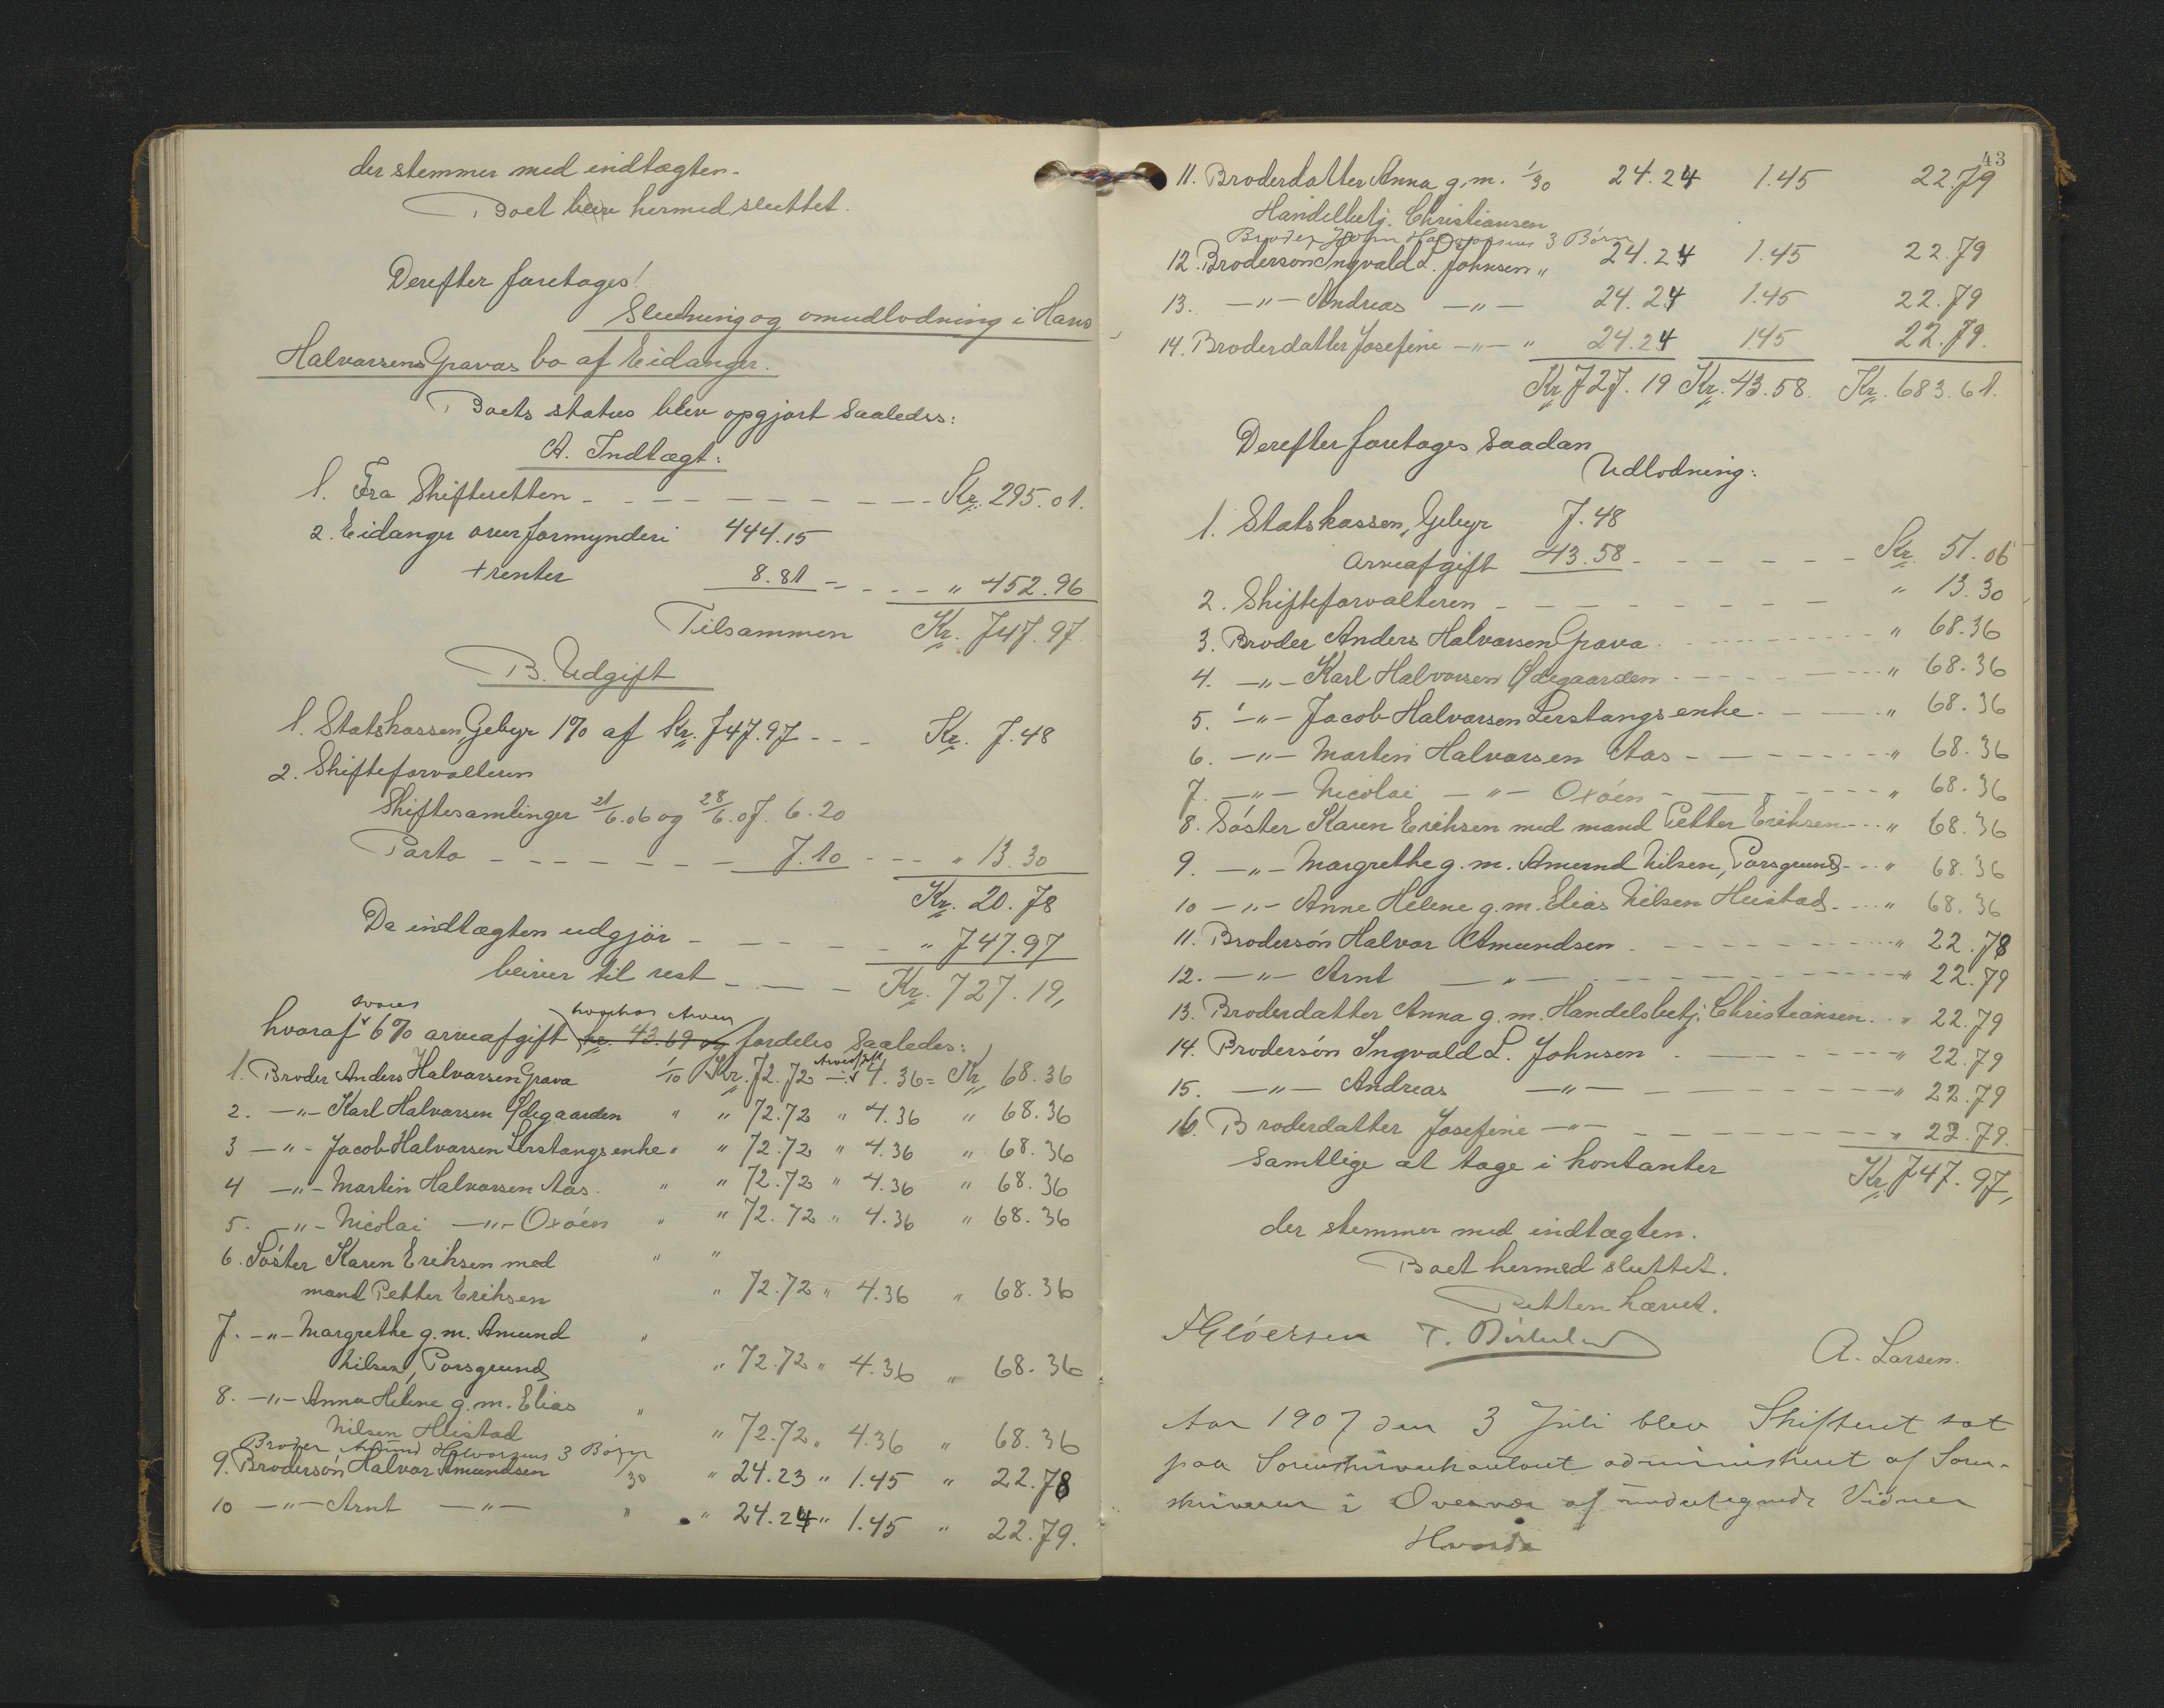 der stemmer med indtægten.
Boet hermed sluttet.
Derefter foretages:
Slutning og omudlodning i Hans
Halvorsens Gravas bo af Eidanger.
Boets status blev opgjort saaledes:
A. Indtægt:
1. Fra Skifteretten - - - - - - - - - Kr. 295.01.
2. Eidanger overformynderi 444.15
+ renter 8.81 - - - - " 452.96
Tilsammen Kr. 747.97.
B. Udgift
1. Statskassen, Gebyr 1% af Kr. 747.97 - - - Kr. 7.48
2. Skifteforvalteren
Skiftesamlinger 21/6.06 og 28/6.07. 6.20
Porto - - - - - - - 7.10 - - - " 13.30
Kr. 20.78
Da indtægten udgjör - - - - - " 747.97
bliver til rest - - - - Kr. 727.19,
svares hvorhos Arven
hvoraf 6% arveafgift kr. 43.69 og fordeles saaledes:
Arveafgift
1. Broder Anders Halvorsen Grava 1/10 Kr. 72.72 - 4.36 = Kr. 68.36
2. -"- Karl Halvorsen Ödegaarden " " 72.72 " 4.36 " 68.36
3 -"- Jacob Halvorsen Lerstangs enke " " 72.72 " 4.36 " 68.36
4 -"- Martin Halvorsen Aas. " " 72.72 " 4.36 " 68.36
5. -"- Nicolai -"- Oxöen " " 72.72 " 4.36 " 68.36
6. Söster Karen Eriksen med " "
mand Petter Eriksen " 72.72 " 4.36 " 68.36
7. -"- Margrethe g.m. Amund "
Nilsen, Porsgrund " 72.72 " 4.36 " 68.36
8. -"- Anna Helene g.m. Elias "
Nilsen Heistad " 72.72 " 4.36 " 68.36
Broder Amund Halvorsens 3 Börn
9. Brodersön Halvor Amundsen 1/30 " 24.23 " 1.45 " 22.78
10 -"- Arnt -"- " " 24.24 " 1.45 " 22.79.
43
11. Broderdatter Anna g.m. 1/30 24.24 1.45 22.79
Handelbetj. Christiansen
Broder John Halvorsens 3 Börn
12. Brodersön Ingvald L. Johnsen " 24.24 1.45 22.79
13. -"- Andreas -"- 24.24 1.45 22.79
14. Broderdatter Josefine -"- " 24.24 1.45 22.79.
Kr. 727.19 Kr. 43.58. Kr. 683.61.
Derefter foretages saadan
Udlodning:
1. Statskassen, Gebyr 7.48
Arveafgift 43.58 - - - - - - Kr. 51.06
2. Skifteforvalteren - - - - - - - - " 13.30
3. Broder Anders Halvorsen Grava - - - - " 68.36
4. -"- Karl Halvorsen Ödegaarden - - - - " 68.36
5. -"- Jacob Halvorsen Lerstangs enke - - - " 68.36
6. -"- Martin Halvorsen Aas - - - - - - " 68.36
7. -"- Nicolai -"- Oxöen - - - - - - " 68.36
8. Söster Karen Eriksen med mand Petter Eriksen - - " 68.36
9. -"- Margrethe g.m. Amund Nilsen, Porsgrund - - " 68.36
10 -"- Anne Helene g.m. Elias Nilsen Heistad - - " 68.36
11. Brodersön Halvor Amundsen - - - - - - " 22.78
12. -"- Arnt -"- - - - - - - " 22.79
13. Broderdatter Anna g.m. Handelsbetj. Christiansen. " 22.79
14. Brodersön Ingvald L. Johnsen - - - - " 22.79
15. -"- Andreas -"- - - - - " 22.79
16. Broderdatter Josefine -"- - - - - - " 22.79.
samtlige at tage i kontanter Kr. 747.97,
der stemmer med indtægten.
Boet hermed sluttet.
Retten hævet.
A. Larsen.
Aar 1907 den 3 Juli blev Skifteret sat
paa Sorenskriverkontoret administreret af Soren-
skriveren i Overvær af undertegnede Vidner
Hvorda